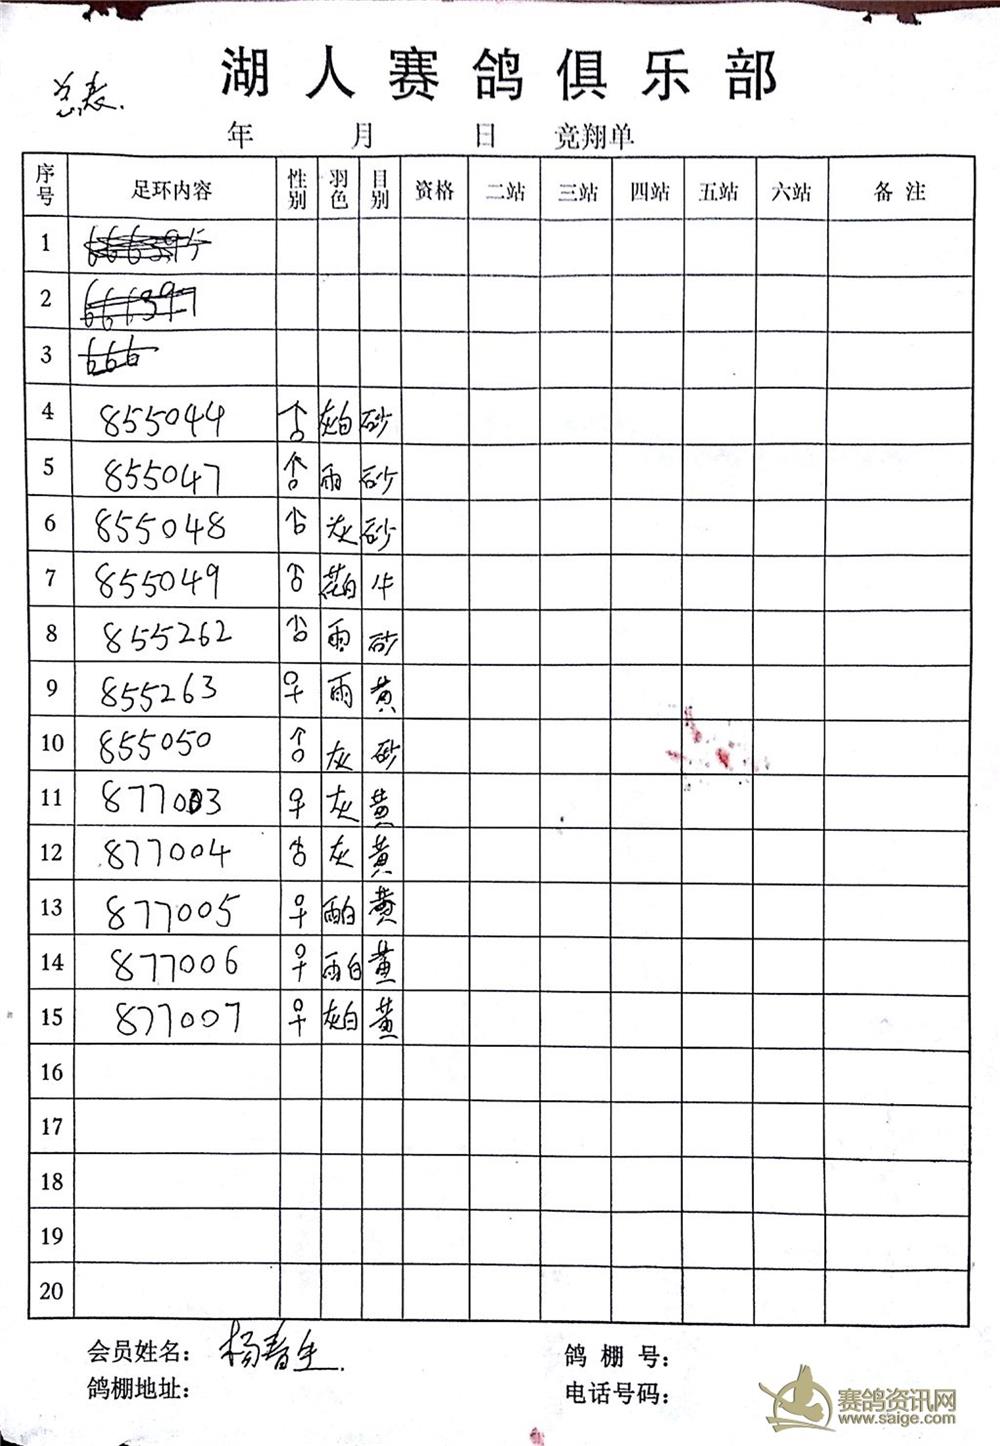 湖人赛鸽俱乐部
总表.
年 月 日 竞翔单
序号 足环内容 性别 羽色 目别 资格 二站 三站 四站 五站 六站 备注
1
2
3 666
4 855044 ♂ 灰白 砂
5 855047 ♂ 雨 砂
6 855048 ♂ 灰 砂
7 855049 ♂ 花白 牛
8 855262 ♂ 雨 砂
9 855263 ♀ 雨 黄
10 855050 ♂ 灰 砂
11 877003 ♀ 灰 黄
12 877004 ♂ 灰 黄
13 877005 ♀ 雨白 黄
14 877006 ♀ 雨白 黄
15 877007 ♀ 灰白 黄
16
17
18
19
20
会员姓名： 杨春生. 鸽棚号：
鸽棚地址： 电话号码：
赛鸽资讯网
www.saige.com